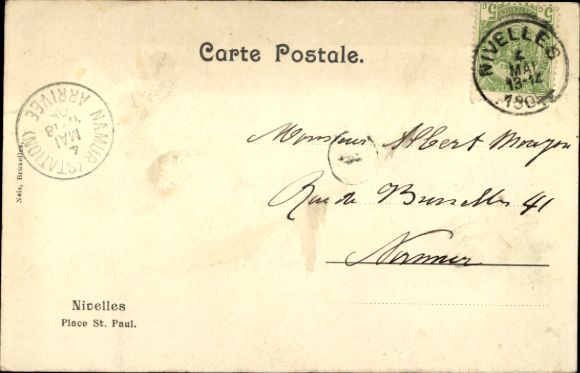 Carte Postale.
5
NIVELLES
4
MAI
13-14
190
NAMUR (STATION)
4
MAI
ARRIVÉE
Monsieur Albert
Rue de Bruxelles 41
Namur
Nels, Bruxelles.
Nivelles
Place St. Paul.